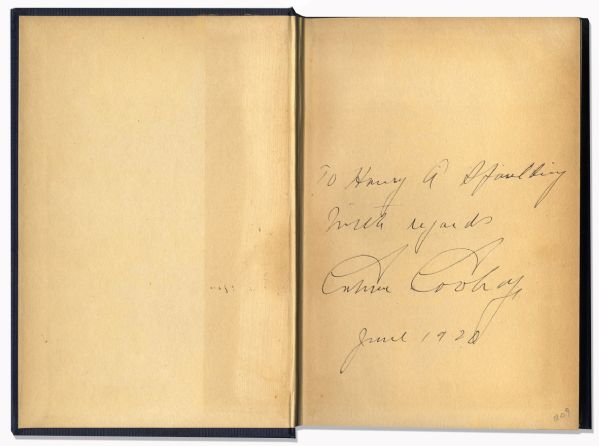 To Harry A Spaulding
With regards
Calvin Coolidge
June 1920
1209